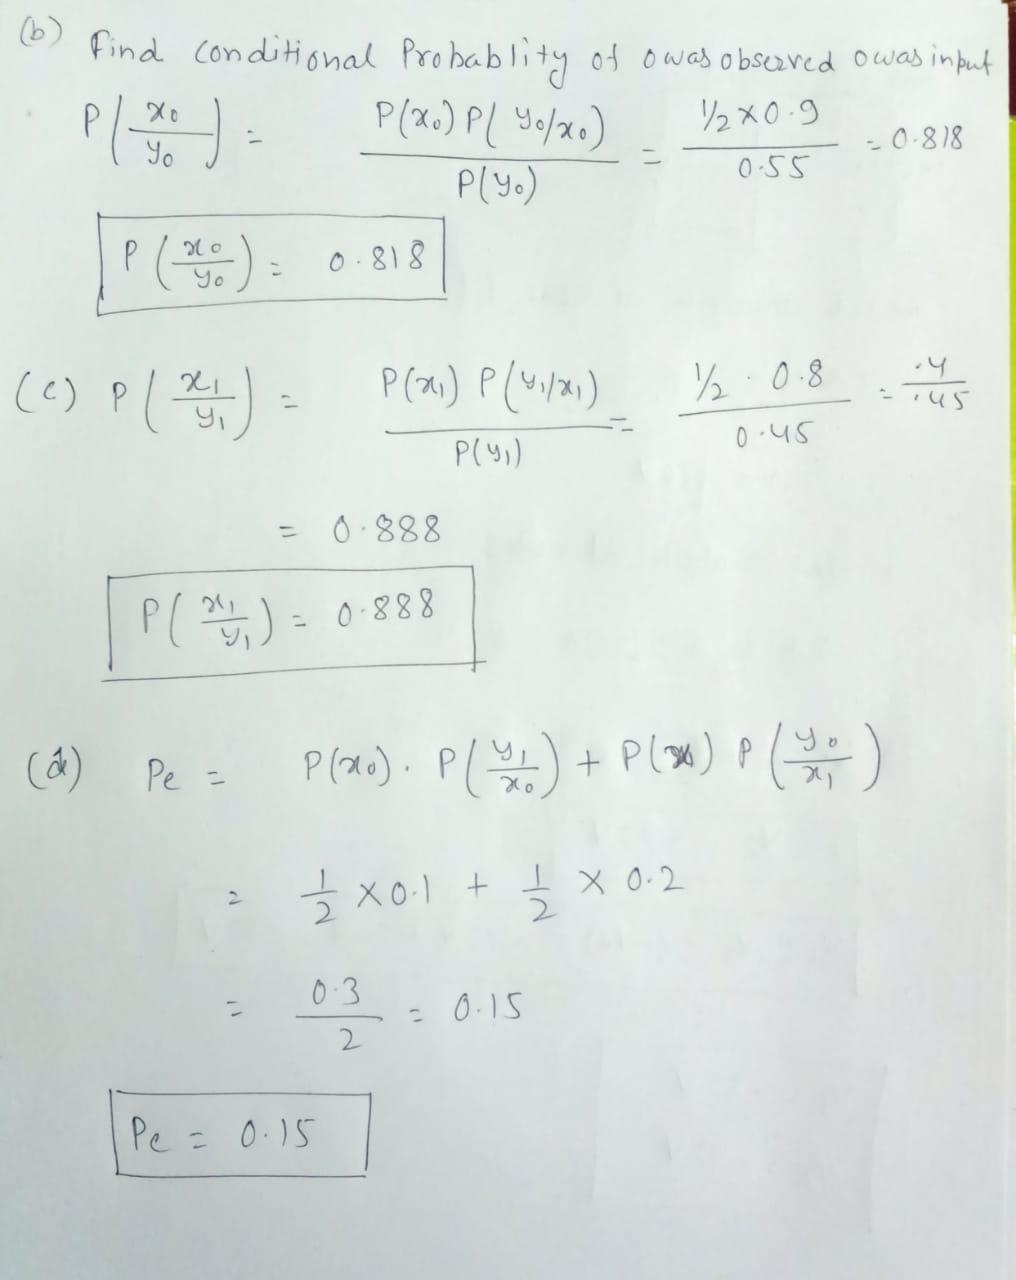 (b) Find conditional Probablity of 0 was observed 0 was input
P(x₀/y₀) = P(x₀) P(y₀/x₀) / P(y₀) = ½ × 0.9 / 0.55 = 0.818
P(x₀/y₀) = 0.818
(c) P(x₁/y₁) = P(x₁) P(y₁/x₁) / P(y₁) = ½ · 0.8 / 0.45 = .4 / .45
= 0.888
P(x₁/y₁) = 0.888
(d) Pe = P(x₀) · P(y₁/x₀) + P(x₁) P(y₀/x₁)
= 1/2 × 0.1 + 1/2 × 0.2
= 0.3 / 2 = 0.15
Pe = 0.15